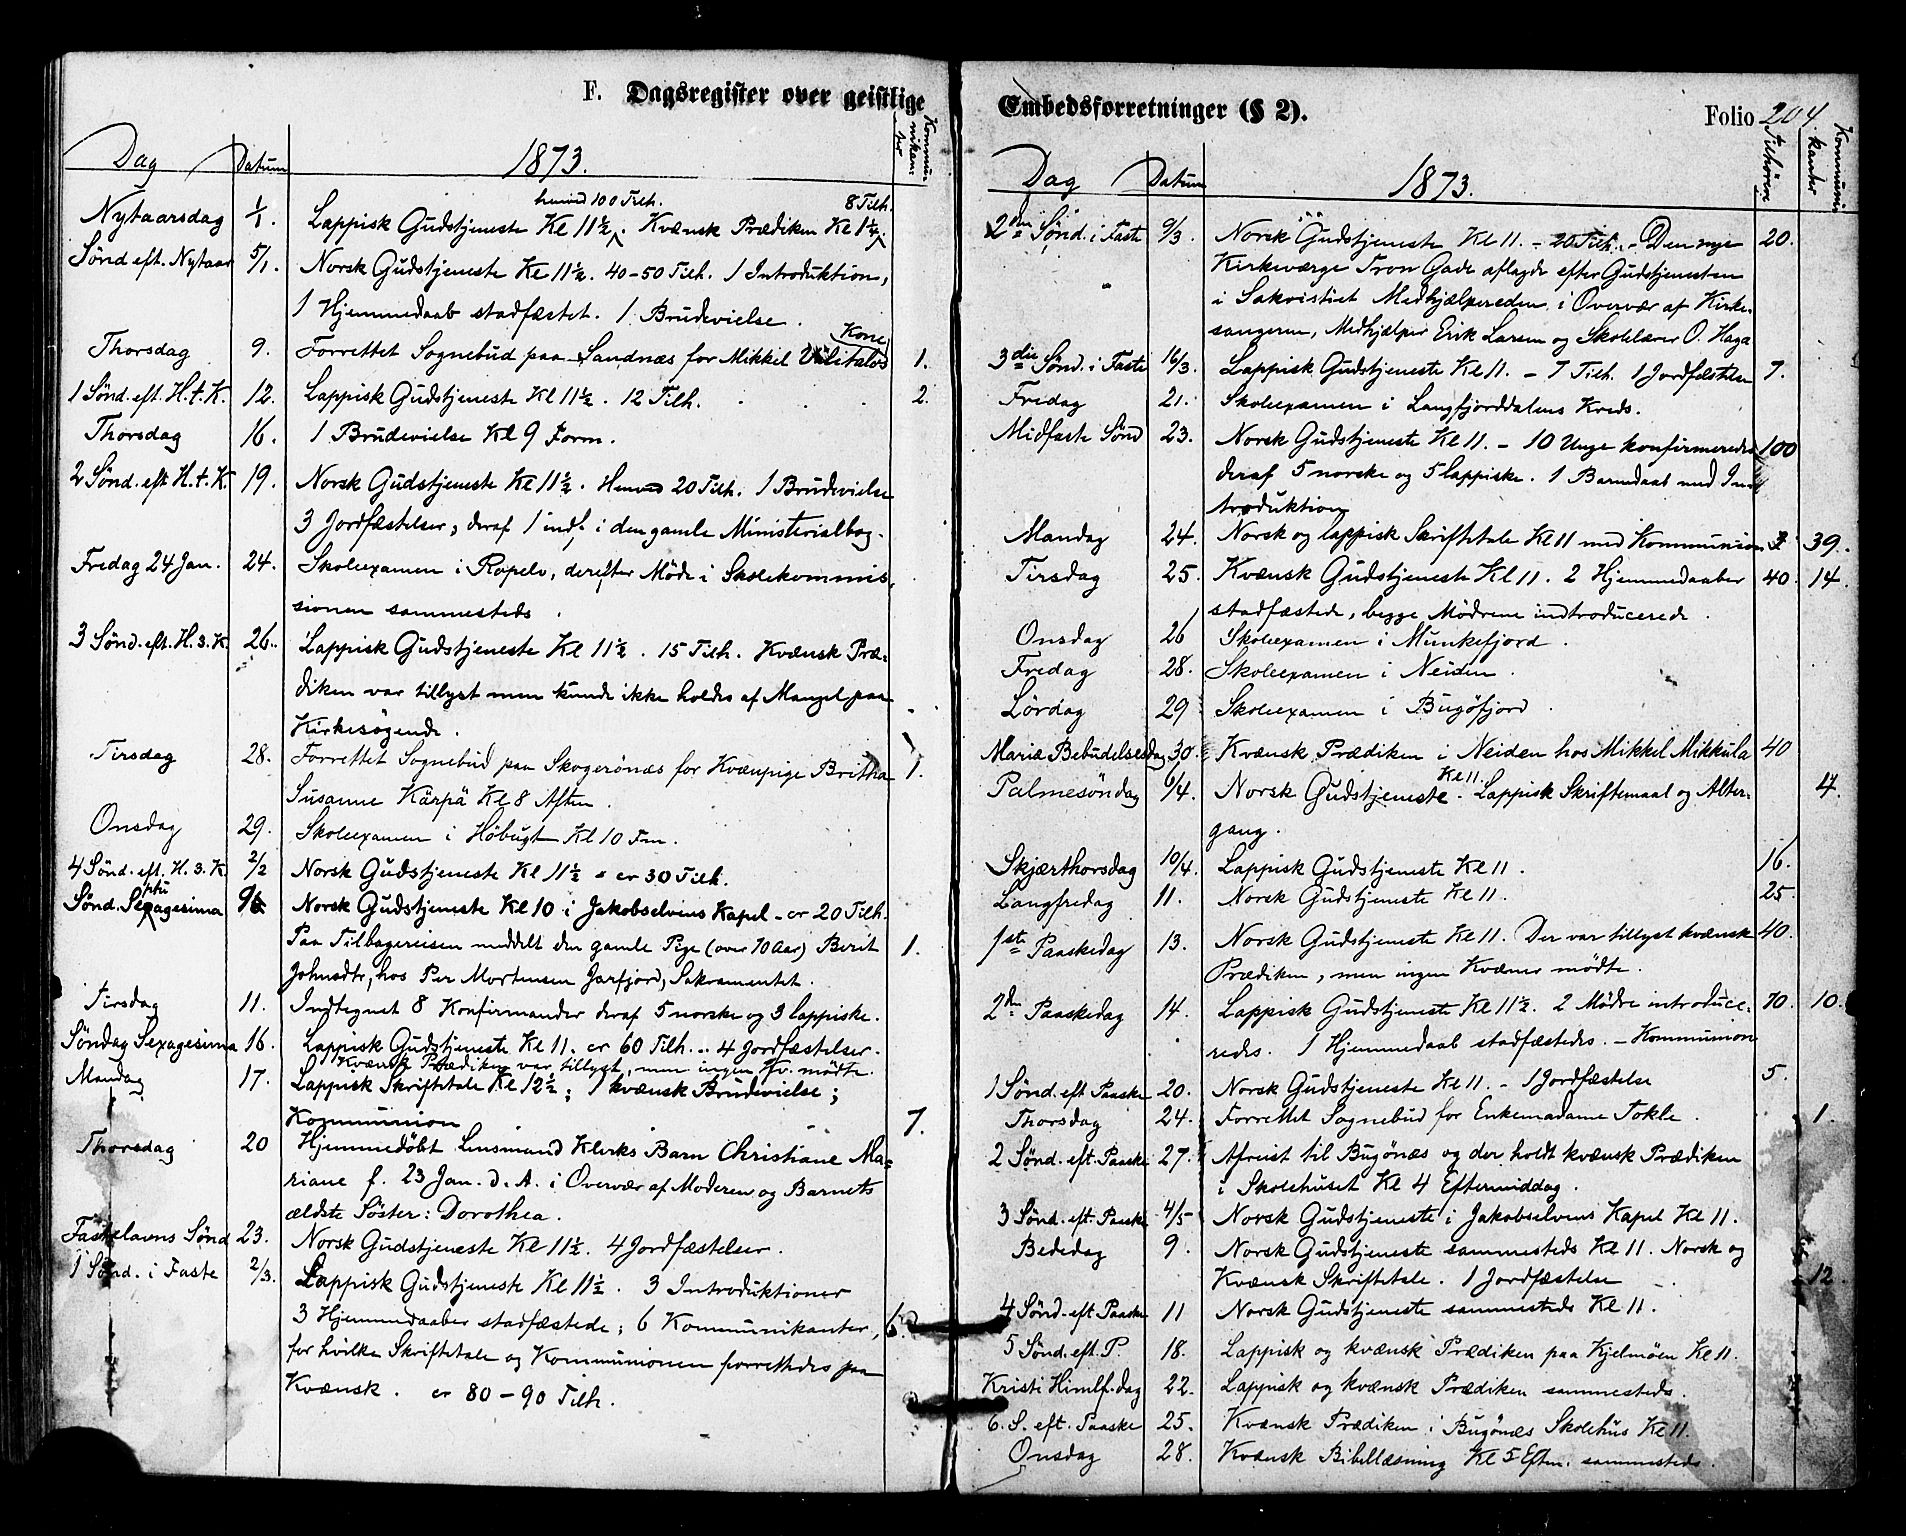 F. Dagsregister over geistlige
Kommunikanter
Dag Datum 1873.
henved 100 Tilh. 8 Tilh.
Nytaarsdag 1/1. Lappisk Gudstjeneste Kl 11½. Kvænsk Prædiken Kl 1½.
Sønd eft. Nytaar 5/1. Norsk Gudstjeneste Kl 11½. 40-50 Tilh. 1 Introduktion,
1 Hjemmedaab stadfæstet. 1 Brudevielse.
Kone
Thorsdag 9. Forrettet Sognebud paa Sandnæs for Mikkel Välitalos 1.
1 Sønd. eft. H.t.K. 12. Lappisk Gudstjeneste Kl 11½. 12 Tilh. 2.
Thorsdag 16. 1 Brudevielse Kl 9 Form.
2 Sønd. eft H.t.K. 19. Norsk Gudstjeneste Kl 11½. Henved 20 Tilh. 1 Brudevielse
3 Jordfæstelser, deraf 1 indf. i den gamle Ministerialbog.
Fredag 24 Jan. 24. Skoleexamen i Ropelv, derefter Møde i Skolekommis-
sionen sammesteds.
3 Sønd. eft. H.3.K. 26. Lappisk Gudstjeneste Kl 11½. 15 Tilh. Kvænsk Præ-
diken var tillyst men kunde ikke holdes af Mangel paa
Kirkesøgende.
Tirsdag 28. Forrettet Sognebud paa Skogerönæs for Kvænpige Britha 1.
Susanne Kärpä Kl 8 Aften.
Onsdag 29. Skoleexamen i Höbugt Kl 10 Fm.
4 Sønd. eft. H.3.K. 2/2 Norsk Gudstjeneste Kl 11½ - cr 30 Tilh.
ptu
Sønd. Sexagesima 9. Norsk Gudstjeneste Kl 10 i Jakobselvens Kapel - cr 20 Tilh.
Paa Tilbagereisen meddelt den gamle Pige (over 70 Aar) Berit 1.
Johnsdtr, hos Per Mortensen Jarfjord, Sakramentet.
Tirsdag 11. Indtegnet 8 Konfirmander deraf 5 norske og 3 lappiske.
Søndag Sexagesima 16. Lappisk Gudstjeneste Kl 11. cr 60 Tilh. 4 Jordfæstelser.
Kvænsk Prædiken var tillyst, men ingen Kv. mødte.
Mandag 17. Lappisk Skriftetale Kl 12½; 1 kvænsk Brudevielse;
Kommunion 7.
Thorsdag 20 Hjemmedøbt Lensmand Klerks Barn Christiane Ma-
riane f. 23 Jan. d. A. i Overvær af Moderen og Barnets
ældste Søster: Dorothea.
Fastelavns Sønd 23. Norsk Gudstjeneste Kl 11½. 4 Jordfæstelser.
1 Sønd. i Faste 2/3. Lappisk Gudstjeneste Kl 11½. 3 Introduktioner
3 Hjemmedaaber stadfæstede; 6 Kommunikanter, 6.
for hvilke Skriftetale og Kommunionen forrettedes paa
Kvænsk. cr 80-90 Tilh.
Embedsforretninger (§ 2). Folio 204.
Tilhörere Kommunikanter
Dag Datum 1873.
2den Sønd. i Faste 9/3. Norsk Gudstjeneste Kl 11. - 20 Tilh. - Den nye 20.
Kirkeværge Tron Gade aflagde efter Gudstjenesten
i Sakristiet Medhjælpereden i Overvær af Kirke-
sangeren, Medhjælper Erik Larsen og Skolelærer O. Haga
3die Sønd. i Faste 16/3. Lappisk Gudstjeneste Kl 11. - 7 Tilh. 1 Jordfæstelse 7.
Fredag 21. Skoleexamen i Langfjorddalens Kreds.
Midfaste Sønd 23. Norsk Gudstjeneste Kl 11. - 10 Unge konfirmeredes 100
deraf 5 norske og 5 lappiske. 1 Barnedaab med In-
troduktion
Mandag 24. Norsk og lappisk Skriftetale Kl 11 med Kommunion 39.
Tirsdag 25. Kvænsk Gudstjeneste Kl 11. 2 Hjemmedaaber 40. 14.
stadfæstede, begge Mødrene indtroducerede.
Onsdag 26 Skoleexamen i Munkefjord.
Fredag 28. Skoleexamen i Neiden.
Lördag 29 Skoleexamen i Bugöfjord.
Mariæ Bebudelsesdag 30. Kvænsk Prædiken i Neiden hos Mikkel Mikkula 40
Kl 11.
Palmesöndag 6/4. Norsk Gudstjeneste. Lappisk Skriftemaal og Alter- 4.
gang.
Skjærthorsdag 10/4. Lappisk Gudstjeneste Kl 11. 16.
Langfredag 11. Norsk Gudstjeneste Kl 11. 25.
1ste Paaskedag 13. Norsk Gudstjeneste Kl 11. Der var tillyst kvænsk 40.
Prædiken, men ingen Kvæner mödte.
2den Paaskedag 14. Lappisk Gudstjeneste Kl 11½. 2 Mödre introduce- 70. 10.
redes. 1 Hjemmedaab stadfæstedes. - Kommunion
1 Sønd. eft Paaske 20. Norsk Gudstjeneste Kl 11. - 1 Jordfæstelse 5.
Thorsdag 24. Forrettet Sognebud for Enkemadame Tokle. 1.
2 Sønd. eft. Paaske 27. Afreist til Bugönæs og der holdt kvænsk Prædiken
i Skolehuset Kl 4 Eftermiddag.
3 Sønd. eft. Paaske 4/5 Norsk Gudstjeneste i Jakobselvens Kapel Kl 11.
Bededag 9. Norsk Gudstjeneste sammesteds Kl 11. Norsk og
Kvænsk Skriftetale. 1 Jordfæstelse 12.
4 Sønd. eft Paaske 11 Norsk Gudstjeneste sammesteds Kl 11.
5 Sønd. eft. P. 18. Lappisk og kvænsk Prædiken paa Kjelmöen Kl 11.
Kristi Himlf.dag 22. Lappisk og kvænsk Prædiken sammesteds.
6. S. eft. Paaske 25. Kvænsk Prædiken i Bugönæs Skolehus Kl 11.
Onsdag 28. Kvænsk Bibellæsning Kl 5 Eftm. sammesteds.